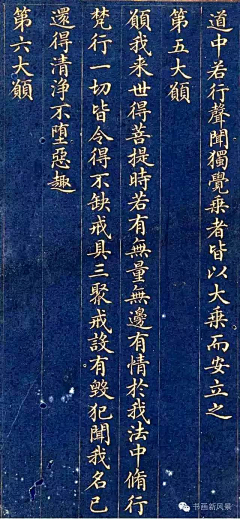 道中若行聲聞獨覺乘者皆以大乘而安立之
第五大願
願我来世得菩提時若有無量無邊有情於我法中脩行
梵行一切皆令得不缺戒具三聚戒設有毀犯聞我名已
還得清淨不墮惡趣
第六大願
书画新风景